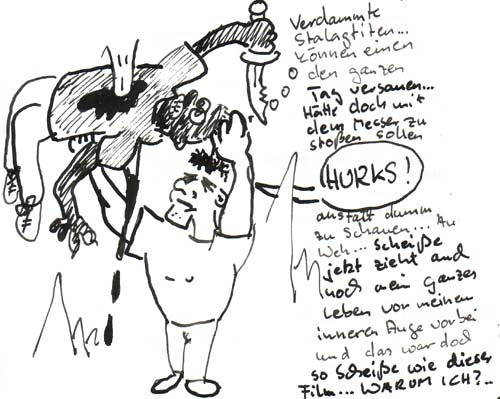 Verdammte
Stalagtiten...
können einen
den ganzen
Tag versauen...
Hätte doch mit
dem Messer zu
stoßen sollen
HURKS!
anstatt dumm
zu schauen... Au
Weh... Scheiße
jetzt zieht auch
noch mein ganzes
Leben vor meinem
inneren Auge vorbei
und das war doch
so Scheiße wie dieser
Film... WARUM ICH?..